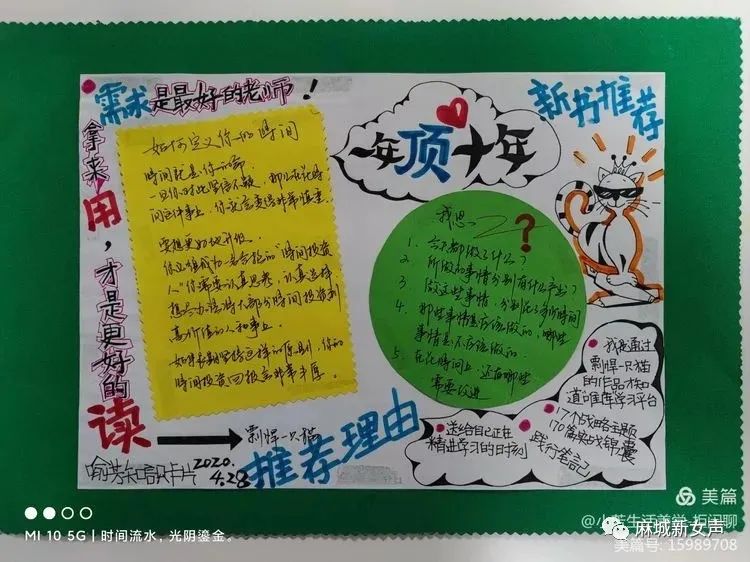 需求是最好的老师！
拿来用，才是更好的读
如何定义你的时间
时间就是你的命
一旦你对此坚信不疑，那么在花时
间这件事上，你就会变得非常慎重。
要想更好地升级，
你必须成为一名合格的"时间投资
人"你需要认真思考，认真选择
想尽办法将大部分时间投资到
高价值的人和事上。
如果长期坚信这样的原则，你的
时间投资回报会非常丰厚。
剽悍一只猫
喻芳知识卡片 2020.
4.28
一年顶十年
新书推荐
我思
？
1、今天都做了什么？
2、所做的事情分别有什么产出？
3、做这些事情，分别花了多少时间
4、哪些事情是应该做的，哪些
事情是不应该做的
5、在花时间上，还有哪些
需要改进
推荐理由
我是通过
剽悍一只猫
的作品才知
道唯库学习平台
17个战略主题
170篇实战锦囊
践行笔记
送给自己正在
精进学习的时刻
MI 10 5G | 时间流水，光阴鎏金。
美篇
麻城新女声
美篇号: 15989708